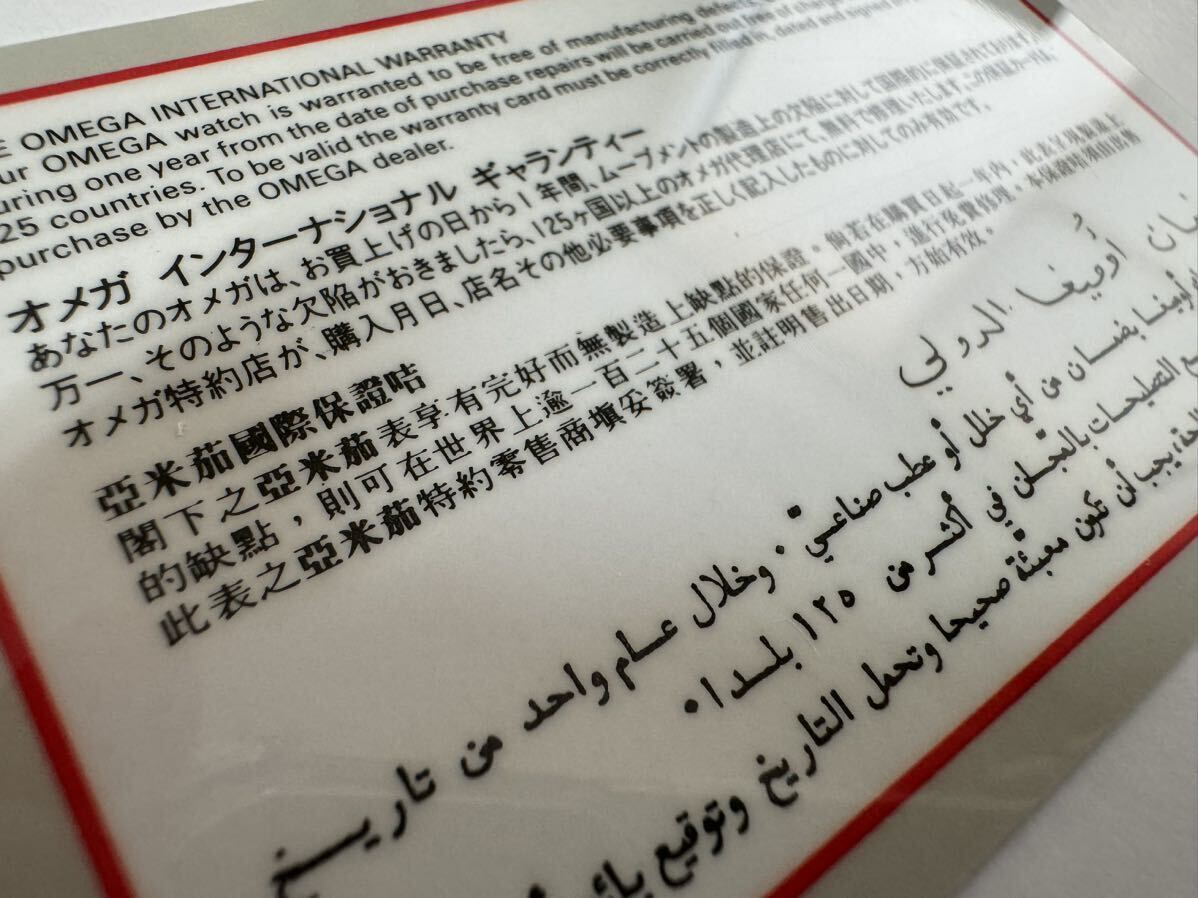 OMEGA INTERNATIONAL WARRANTY
OMEGA watch is warranted to be free of manufacturing
one year from the date of purchase repairs will be carried out free of
countries. To be valid the warranty card must be correctly filled in, dated and signed
purchase by the OMEGA dealer.
オメガ インターナショナル ギャランティー
あなたのオメガは、お買上げの日から1年間、ムーブメントの製造上の欠陥に対して国際的に保証されております
万一、そのような欠陥がおきましたら、125ヶ国以上のオメガ代理店にて、無料で修理いたします。この保証カードは、
オメガ特約店が、購入月日、店名その他必要事項を正しく記入したものに対してのみ有効です。
亞米茄國際保證咭
閣下之亞米茄表享有完好而無製造上缺點的保證。倘若在購買日起一年內，此表呈現製造上
的缺點，則可在世界上逾一百二十五個國家任何一國中，進行免費修理。本保證咭須由出售
此表之亞米茄特約零售商填妥簽署，並註明售出日期，方始有效。
أوميغا الدولي
أوميغا بضمان من أي خلل أو عطب صناعي . وخلال عام واحد من تاريخ
التصليحات بالمجان في أكثر من ١٢٥ بلدا .
يجب أن تكون معبئة صحيحا وتحمل التاريخ وتوقيع